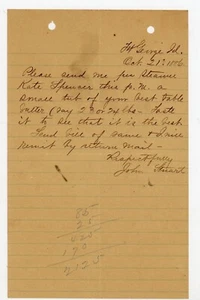 Ft George Id.
Oct. 21st 1886.
Please send me per Steamer
Kate Spencer this p.m. a
small tub of your best table
butter (say 20 or 24 lbs. Taste
it to see that it is the best.
Send bill of same & I will
remit by return mail -
Respectfully
John Stuart
85
25
425
170
2125